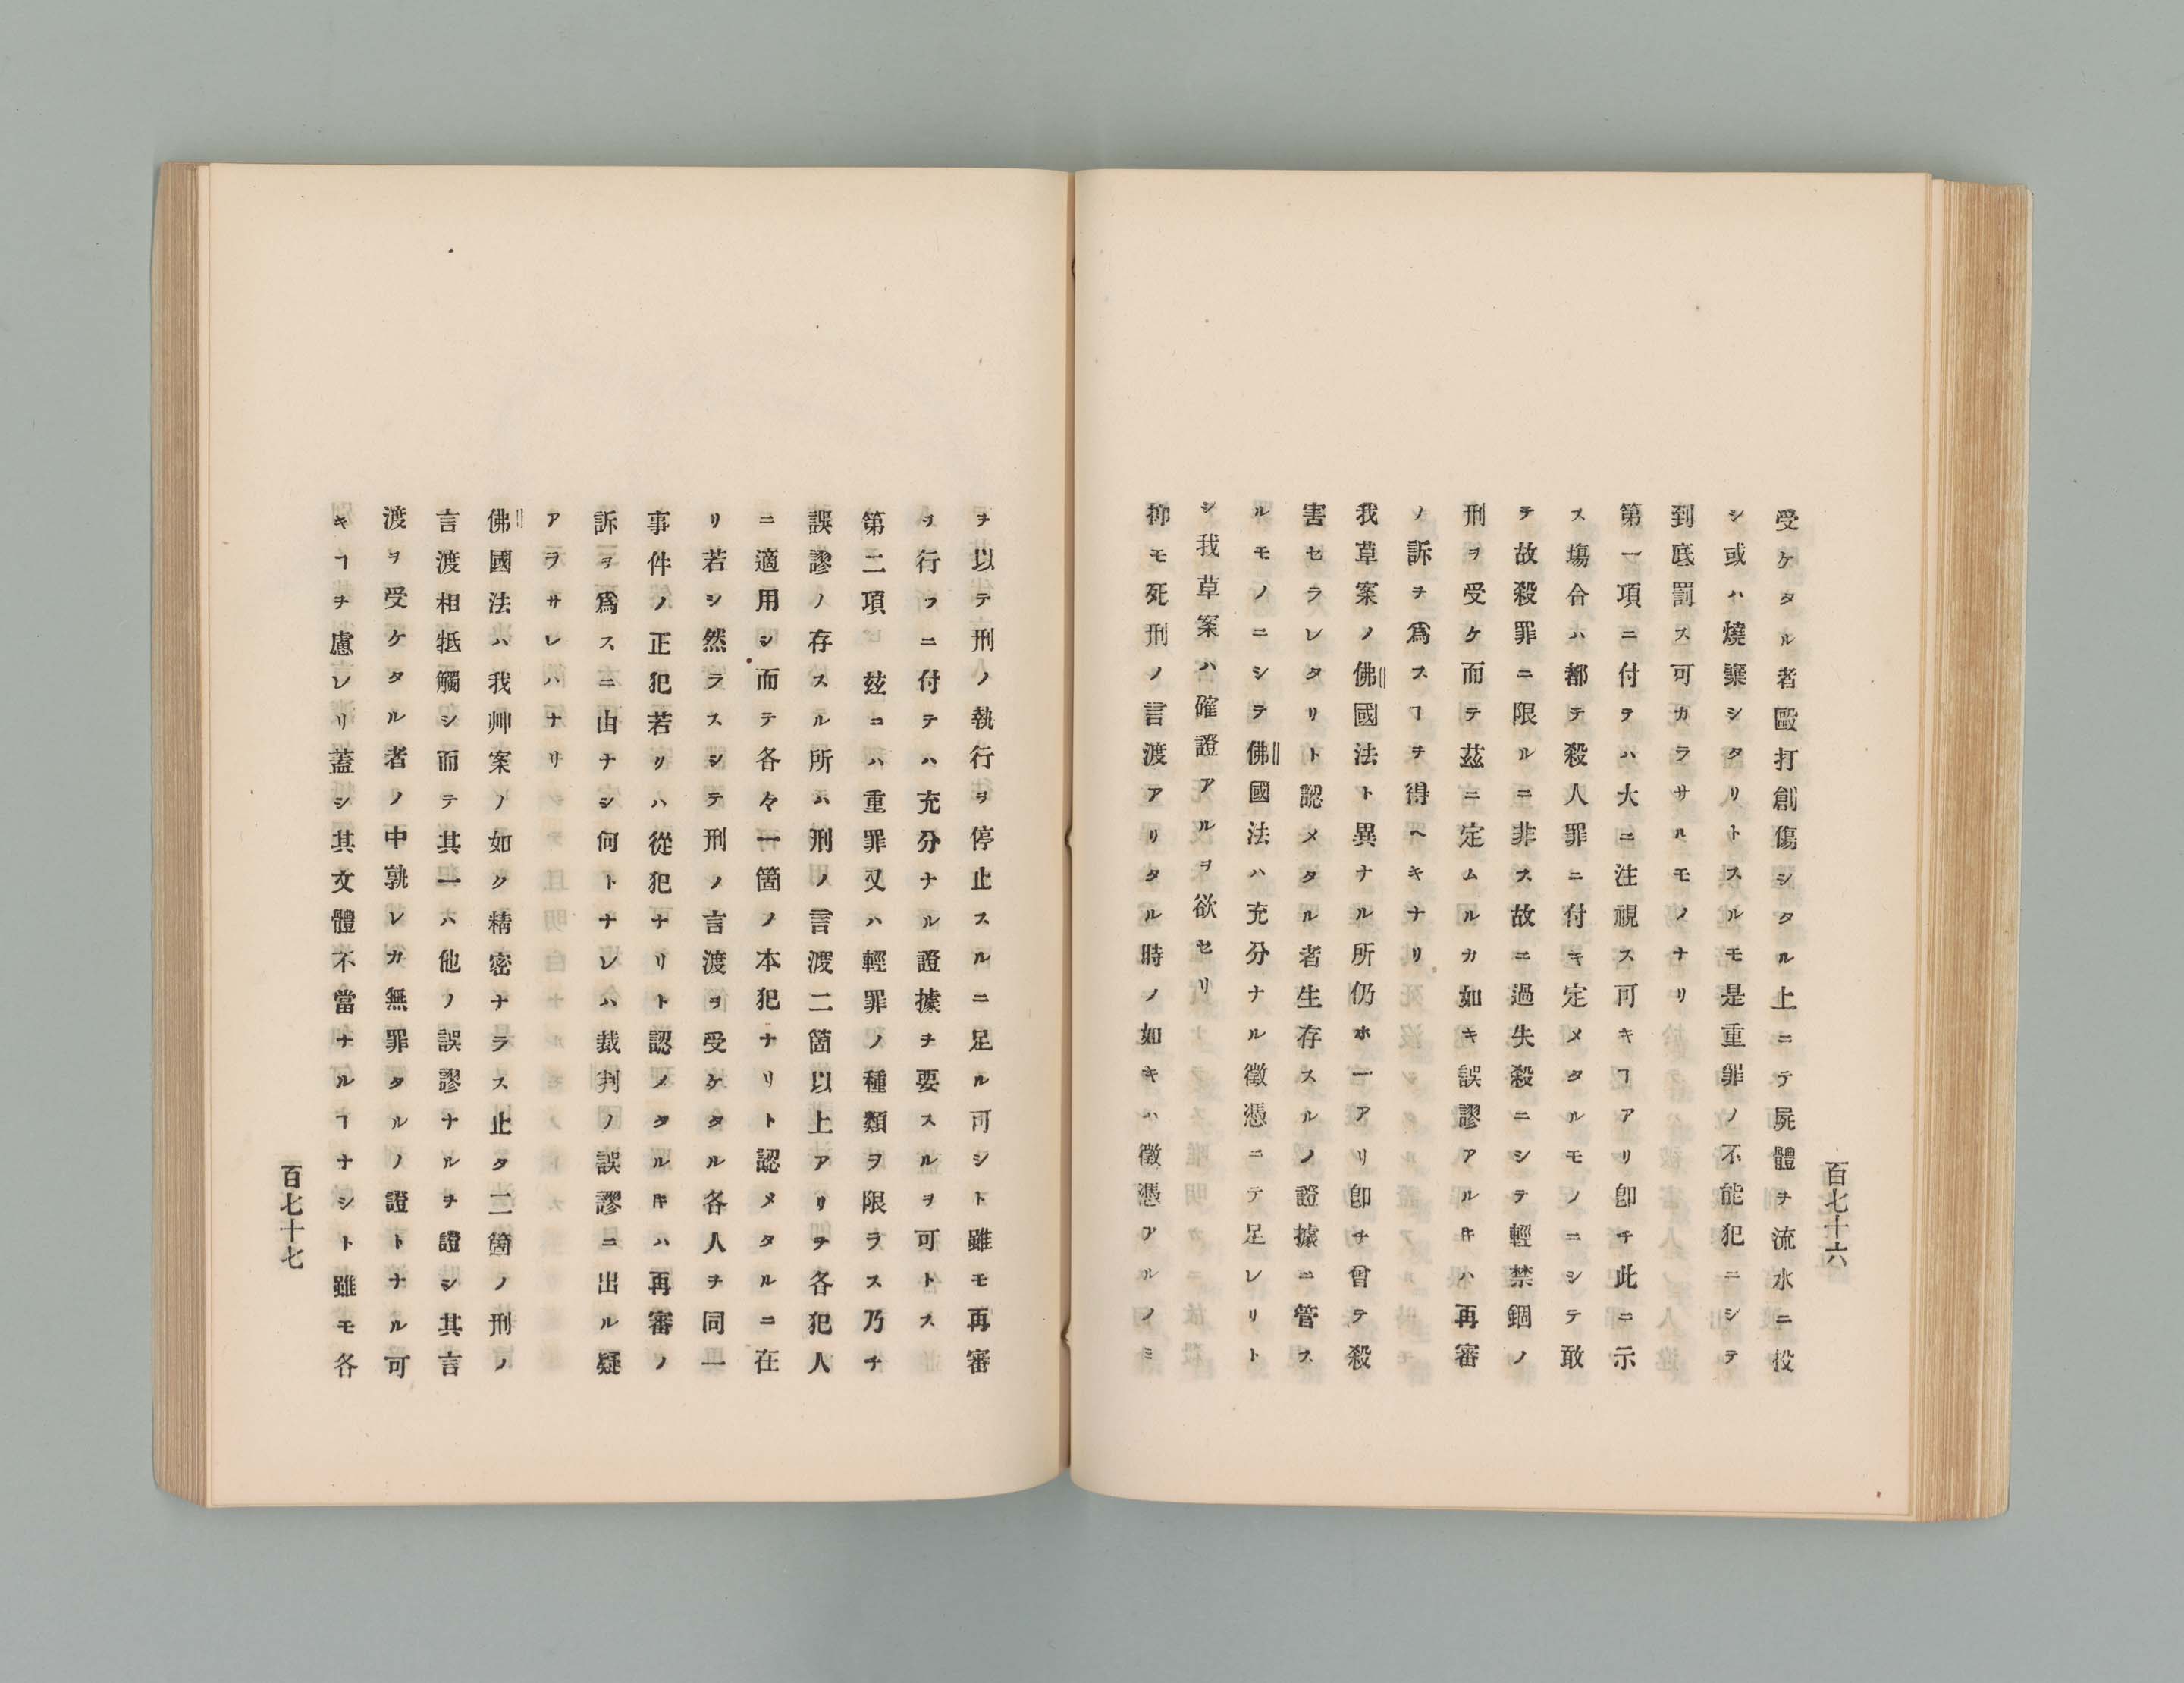 百七十六
受ケタル者毆打創傷シタル上ニテ屍體ヲ流水ニ投
シ或ハ燒棄シタリトスルモ是重罪ノ不能犯ニシテ
到底罰ス可カラサルモノナリ
第一項ニ付テハ大ニ注視ス可キヿアリ卽チ此ニ示
ス塲合ハ都テ殺人罪ニ付キ定メタルモノニシテ敢
テ故殺罪ニ限ルニ非ス故ニ過失殺ニシテ輕禁錮ノ
刑ヲ受ケ而テ玆ニ定ムルカ如キ誤謬アルキハ再審
ノ訴ヲ爲スヿヲ得ヘキナリ
我草案ノ佛國法ト異ナル所仍ホ一アリ卽チ曾テ殺
害セラレタリト認メタル者生存スルノ證據ニ管ス
ルモノニシテ佛國法ハ充分ナル徵憑ニテ足レリト
シ我草案ハ確證アルヲ欲セリ
抑モ死刑ノ言渡アリタル時ノ如キハ徵憑アルノミ
ヲ以テ刑ノ執行ヲ停止スルニ足ル可シト雖モ再審
ヲ行フニ付テハ充分ナル證據ヲ要スルヲ可トス
第二項 玆ニハ重罪又ハ輕罪ノ種類ヲ限ラス乃チ
誤謬ノ存スル所ハ刑ノ言渡二箇以上アリテ各犯人
ニ適用シ而テ各々一箇ノ本犯ナリト認メタルニ在
リ若シ然ラスシテ刑ノ言渡ヲ受ケタル各人ヲ同一
事件ノ正犯若リハ從犯ナリト認メタルキハ再審ノ
訴ヲ爲スニ由ナシ何トナレハ裁判ノ誤謬ニ出ル疑
アラサレハナリ
佛國法ハ我艸案ノ如ク精密ナラス止タ二箇ノ刑ノ
言渡相牴觸シ而テ其一ハ他ノ誤謬ナルヲ證シ其言
渡ヲ受ケタル者ノ中孰レカ無罪タルノ證トナル可
キヿヲ慮レリ蓋シ其文體不當ナルヿナシト雖モ各
百七十七